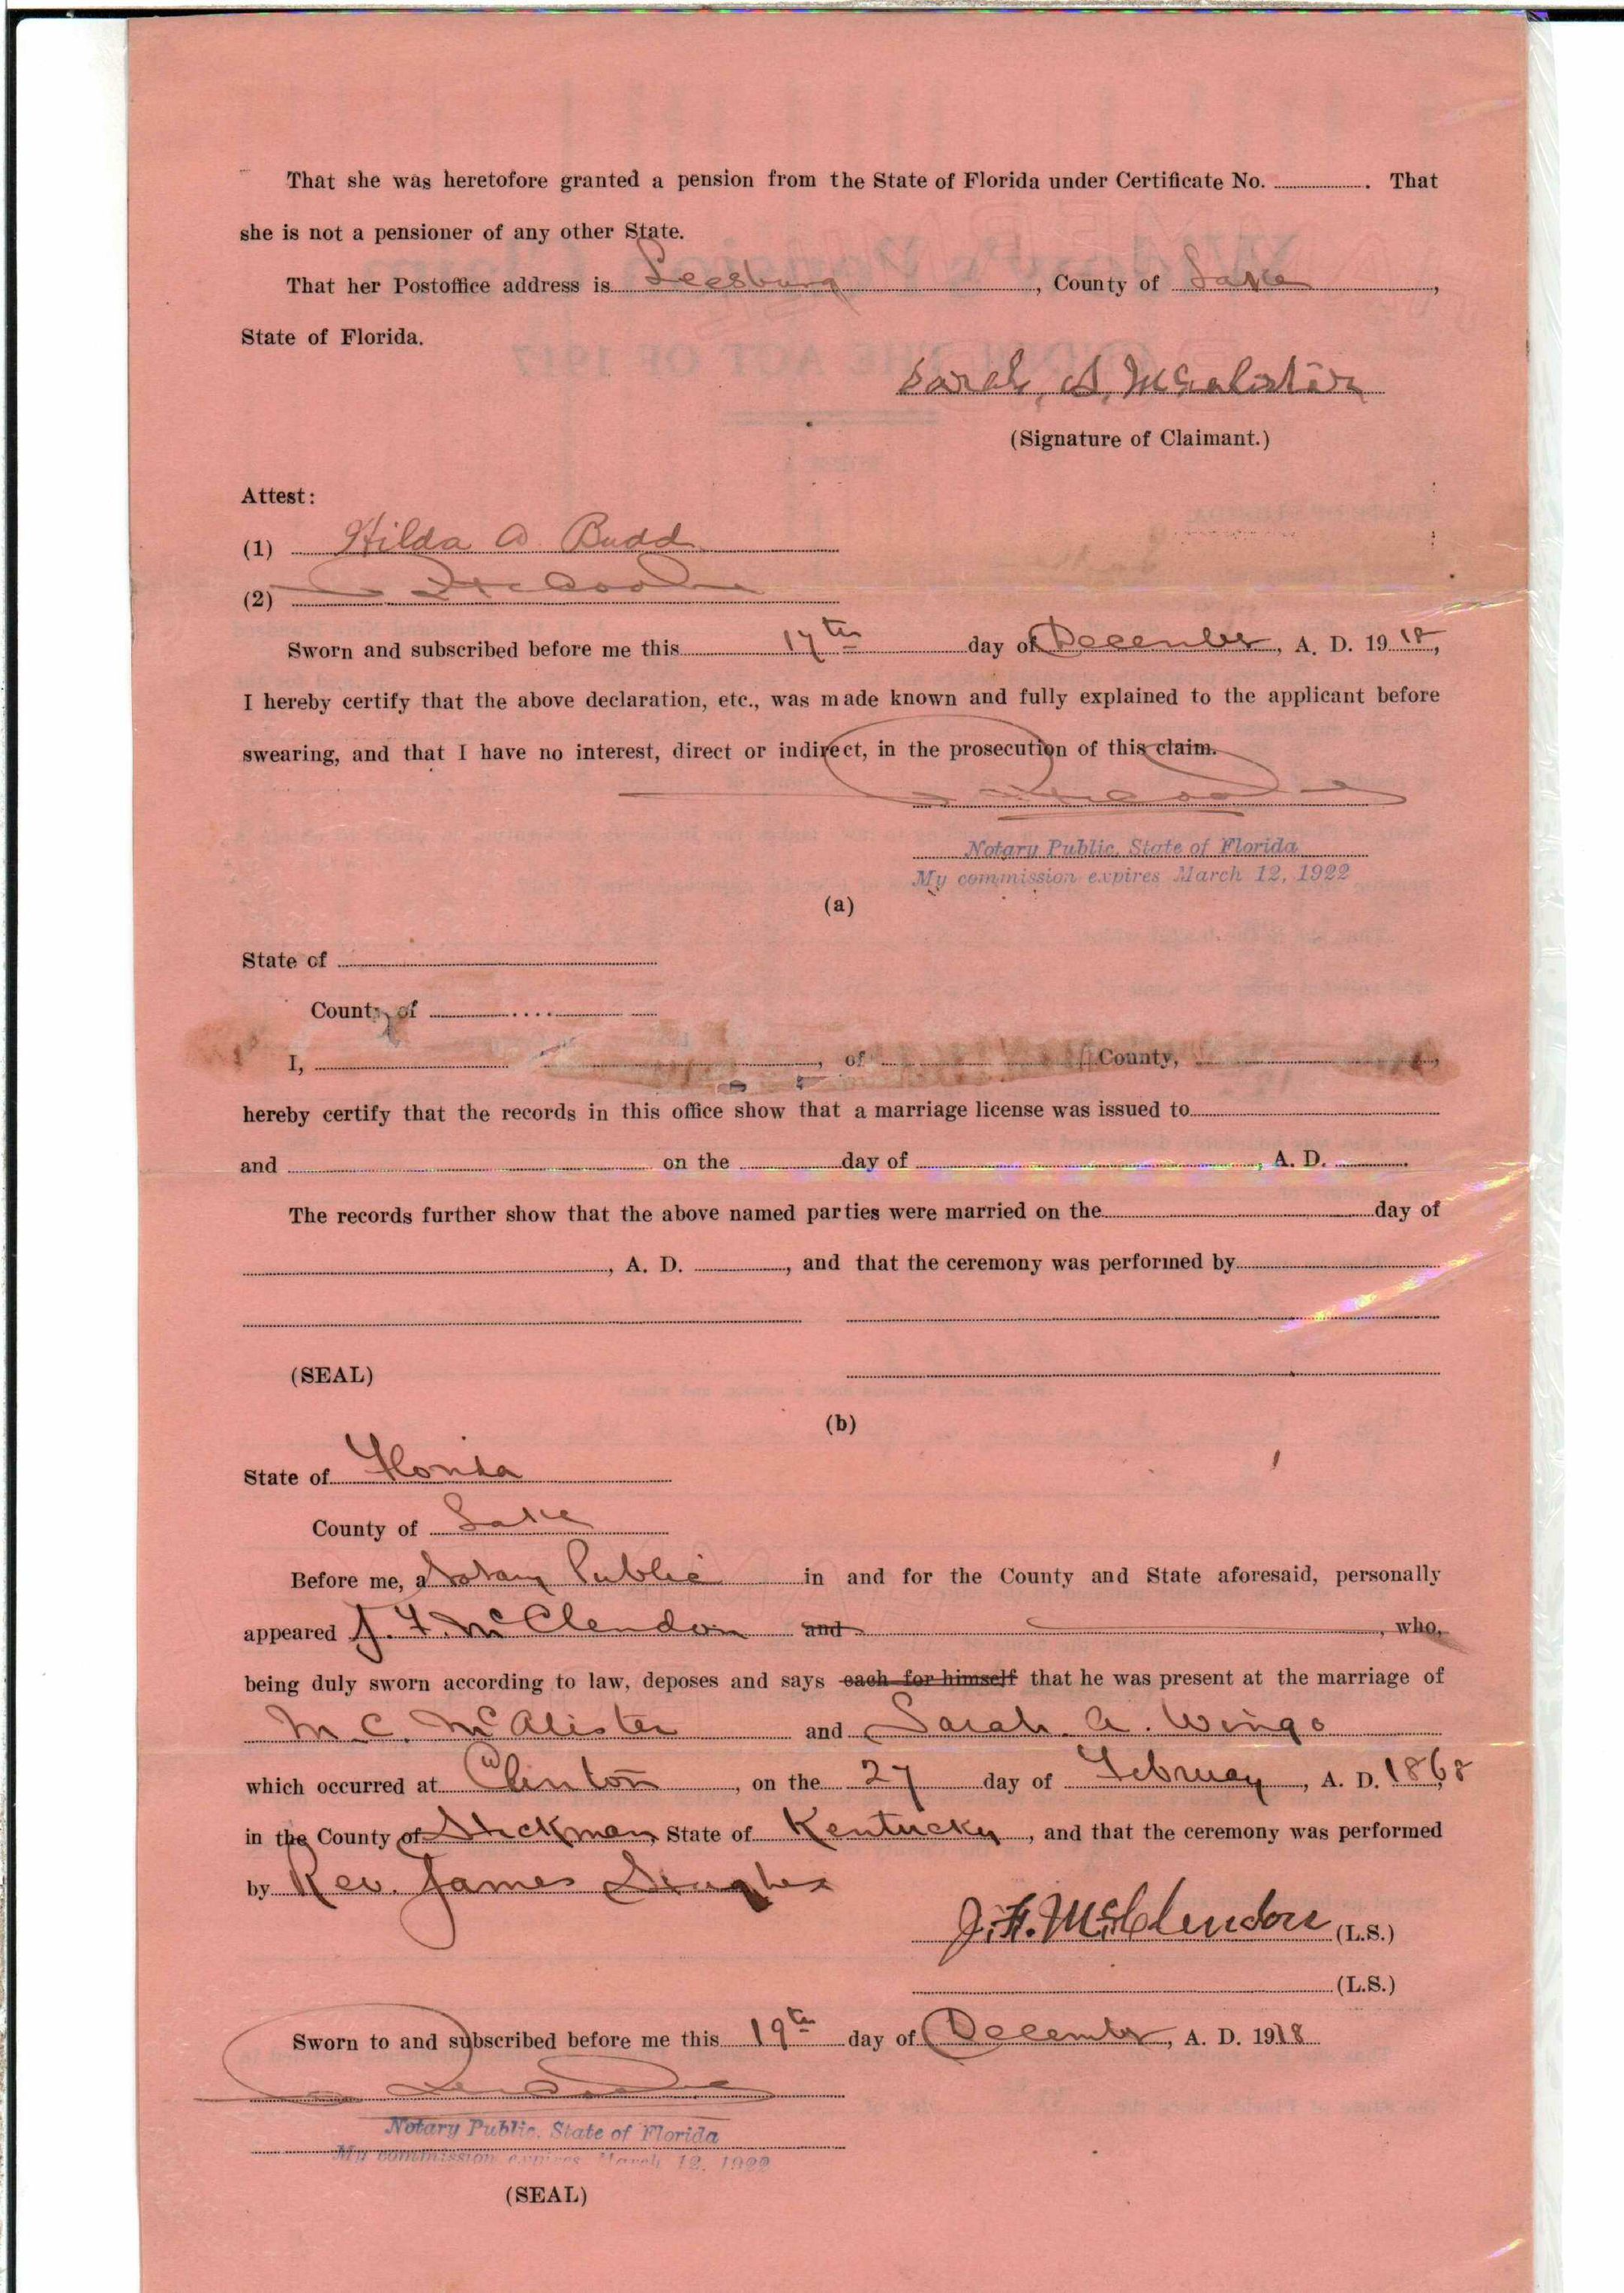 That she was heretofore granted a pension from the State of Florida under Certificate No. . That
she is not a pensioner of any other State.
That her Postoffice address is Leesburg, County of Lake,
State of Florida.
Sarah, A, McAlister
(Signature of Claimant.)
Attest:
(1) Hilda A. Budd
(2)
Sworn and subscribed before me this 17th day of December, A. D. 1918,
I hereby certify that the above declaration, etc., was made known and fully explained to the applicant before
swearing, and that I have no interest, direct or indirect, in the prosecution of this claim.
Notary Public, State of Florida
My commission expires March 12, 1922
(a)
State of
County of
I, , of County, ,
hereby certify that the records in this office show that a marriage license was issued to
and on the day of , A. D. .
The records further show that the above named parties were married on the day of
, A. D. , and that the ceremony was performed by
(SEAL)
(b)
State of Florida
County of Lake
Before me, a Notary Public in and for the County and State aforesaid, personally
appeared J. F. McClendon and , who,
being duly sworn according to law, deposes and says each for himself that he was present at the marriage of
M C. McAlister and Sarah A. Wingo
which occurred at Clinton, on the 27 day of February, A. D. 1868
in the County of Hickman, State of Kentucky, and that the ceremony was performed
by Rev. James
J. F. McClendon (L.S.)
(L.S.)
Sworn to and subscribed before me this 19th day of December, A. D. 1918
Notary Public, State of Florida
My commission expires March 12, 1922
(SEAL)